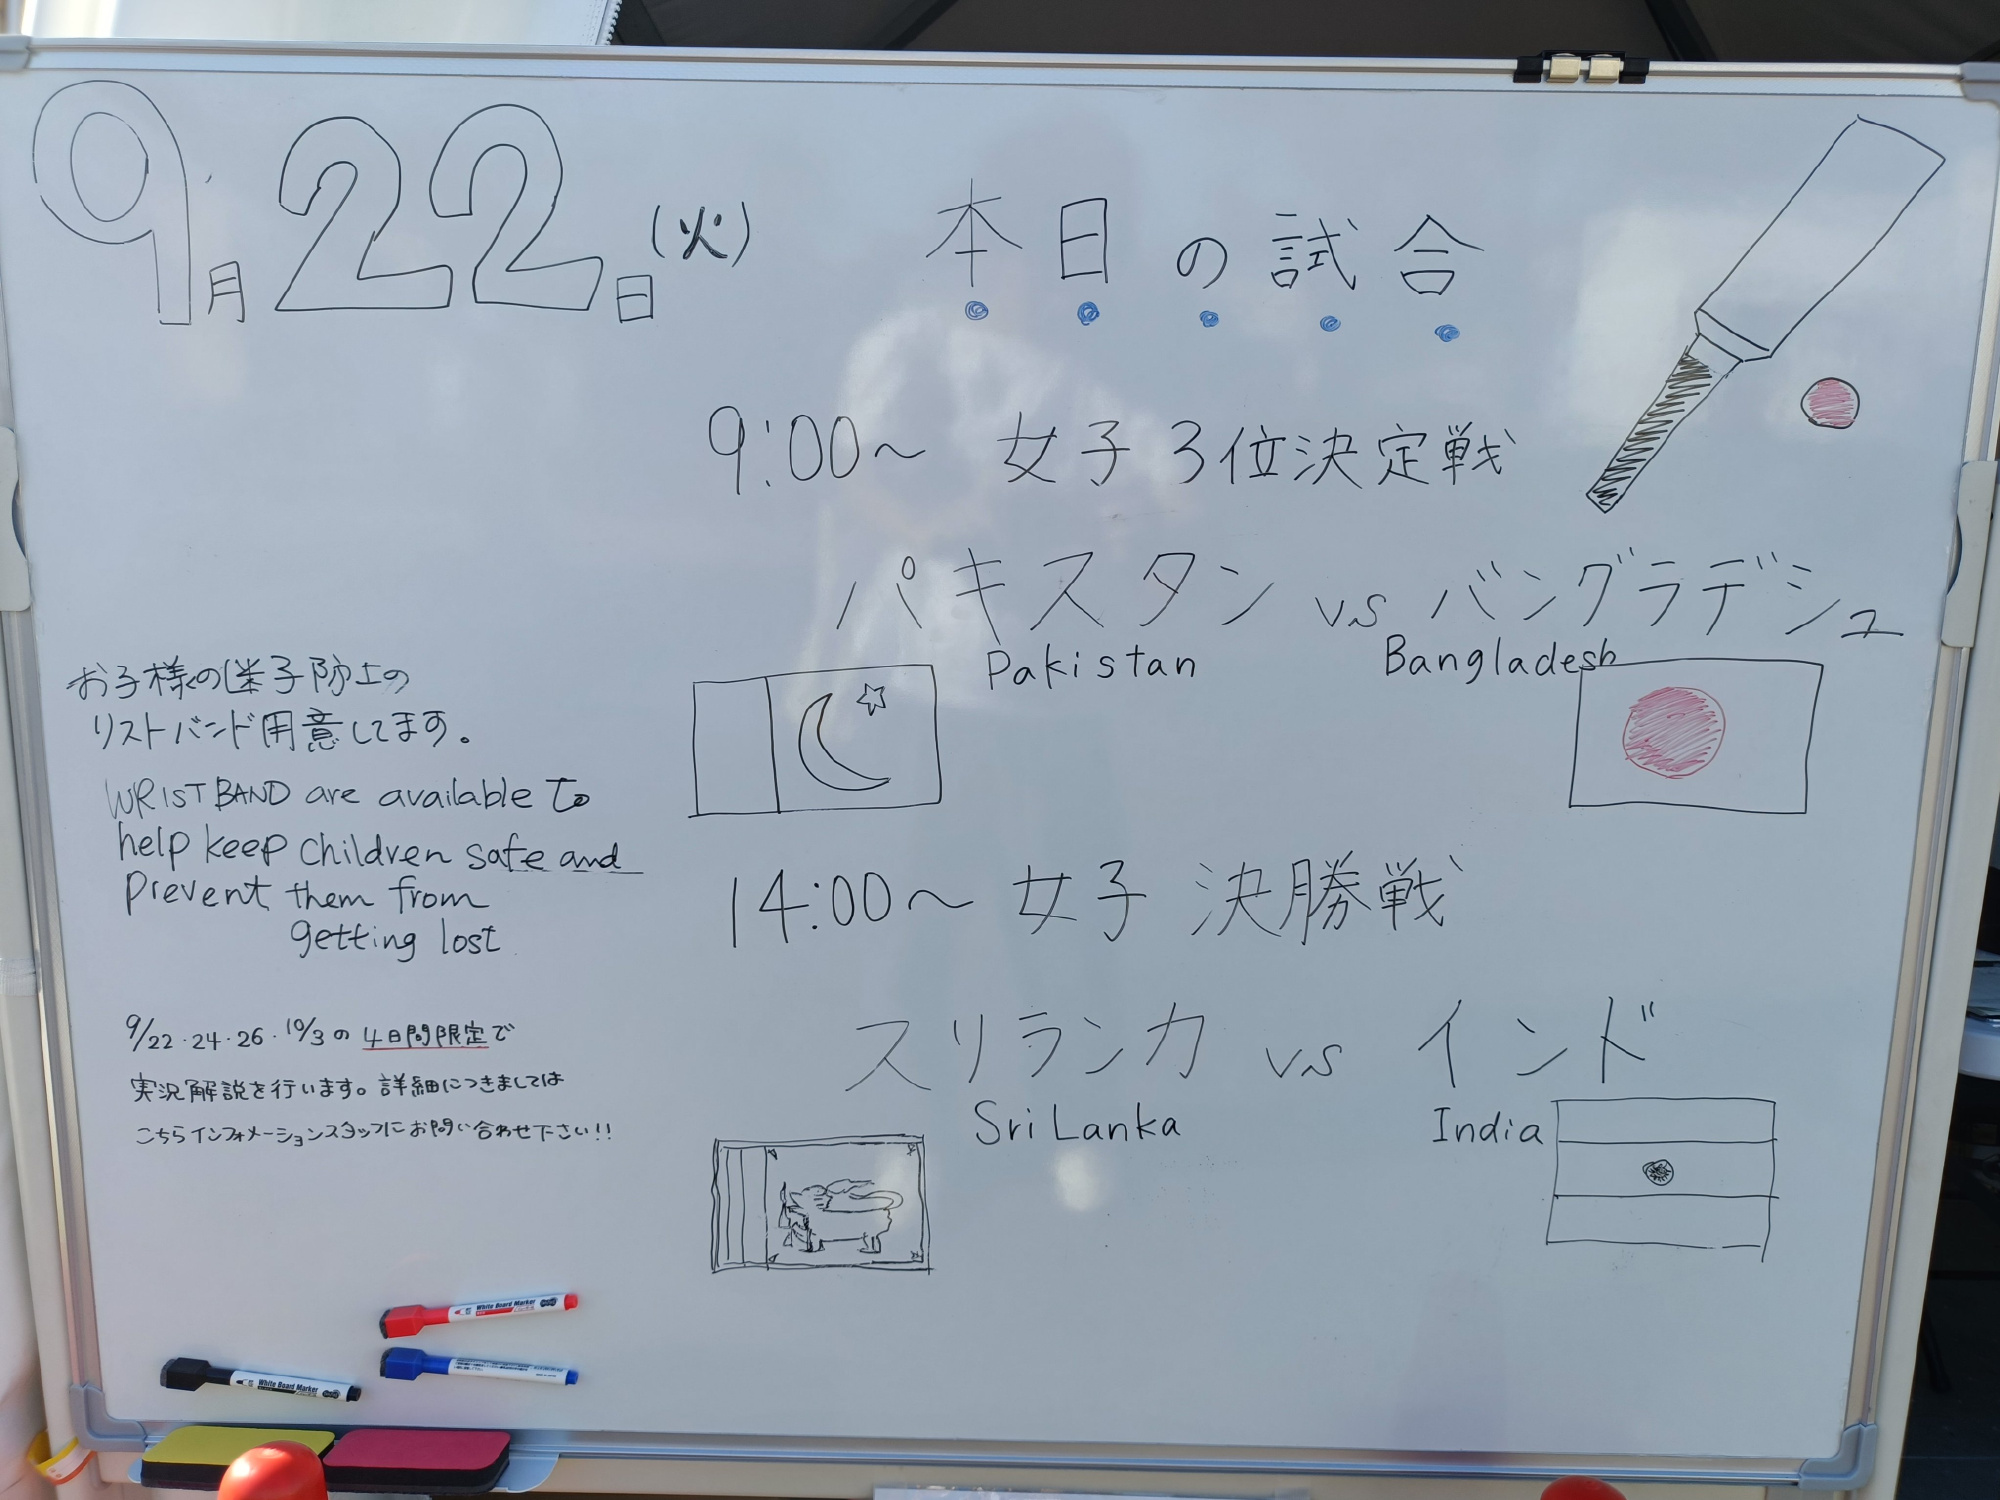 9月22日(火)
本日の試合
9:00〜 女子3位決定戦
パキスタン vs バングラデシュ
Pakistan Bangladesh
14:00〜 女子 決勝戦
スリランカ vs インド
Sri Lanka India
お子様の迷子防止の
リストバンド用意してます。
WRISTBAND are available to
help keep children safe and
prevent them from
getting lost
9/22・24・26・10/3の4日間限定で
実況解説を行います。詳細につきましては
こちらインフォメーションスタッフにお問い合わせ下さい!!
White Board Marker
White Board Marker